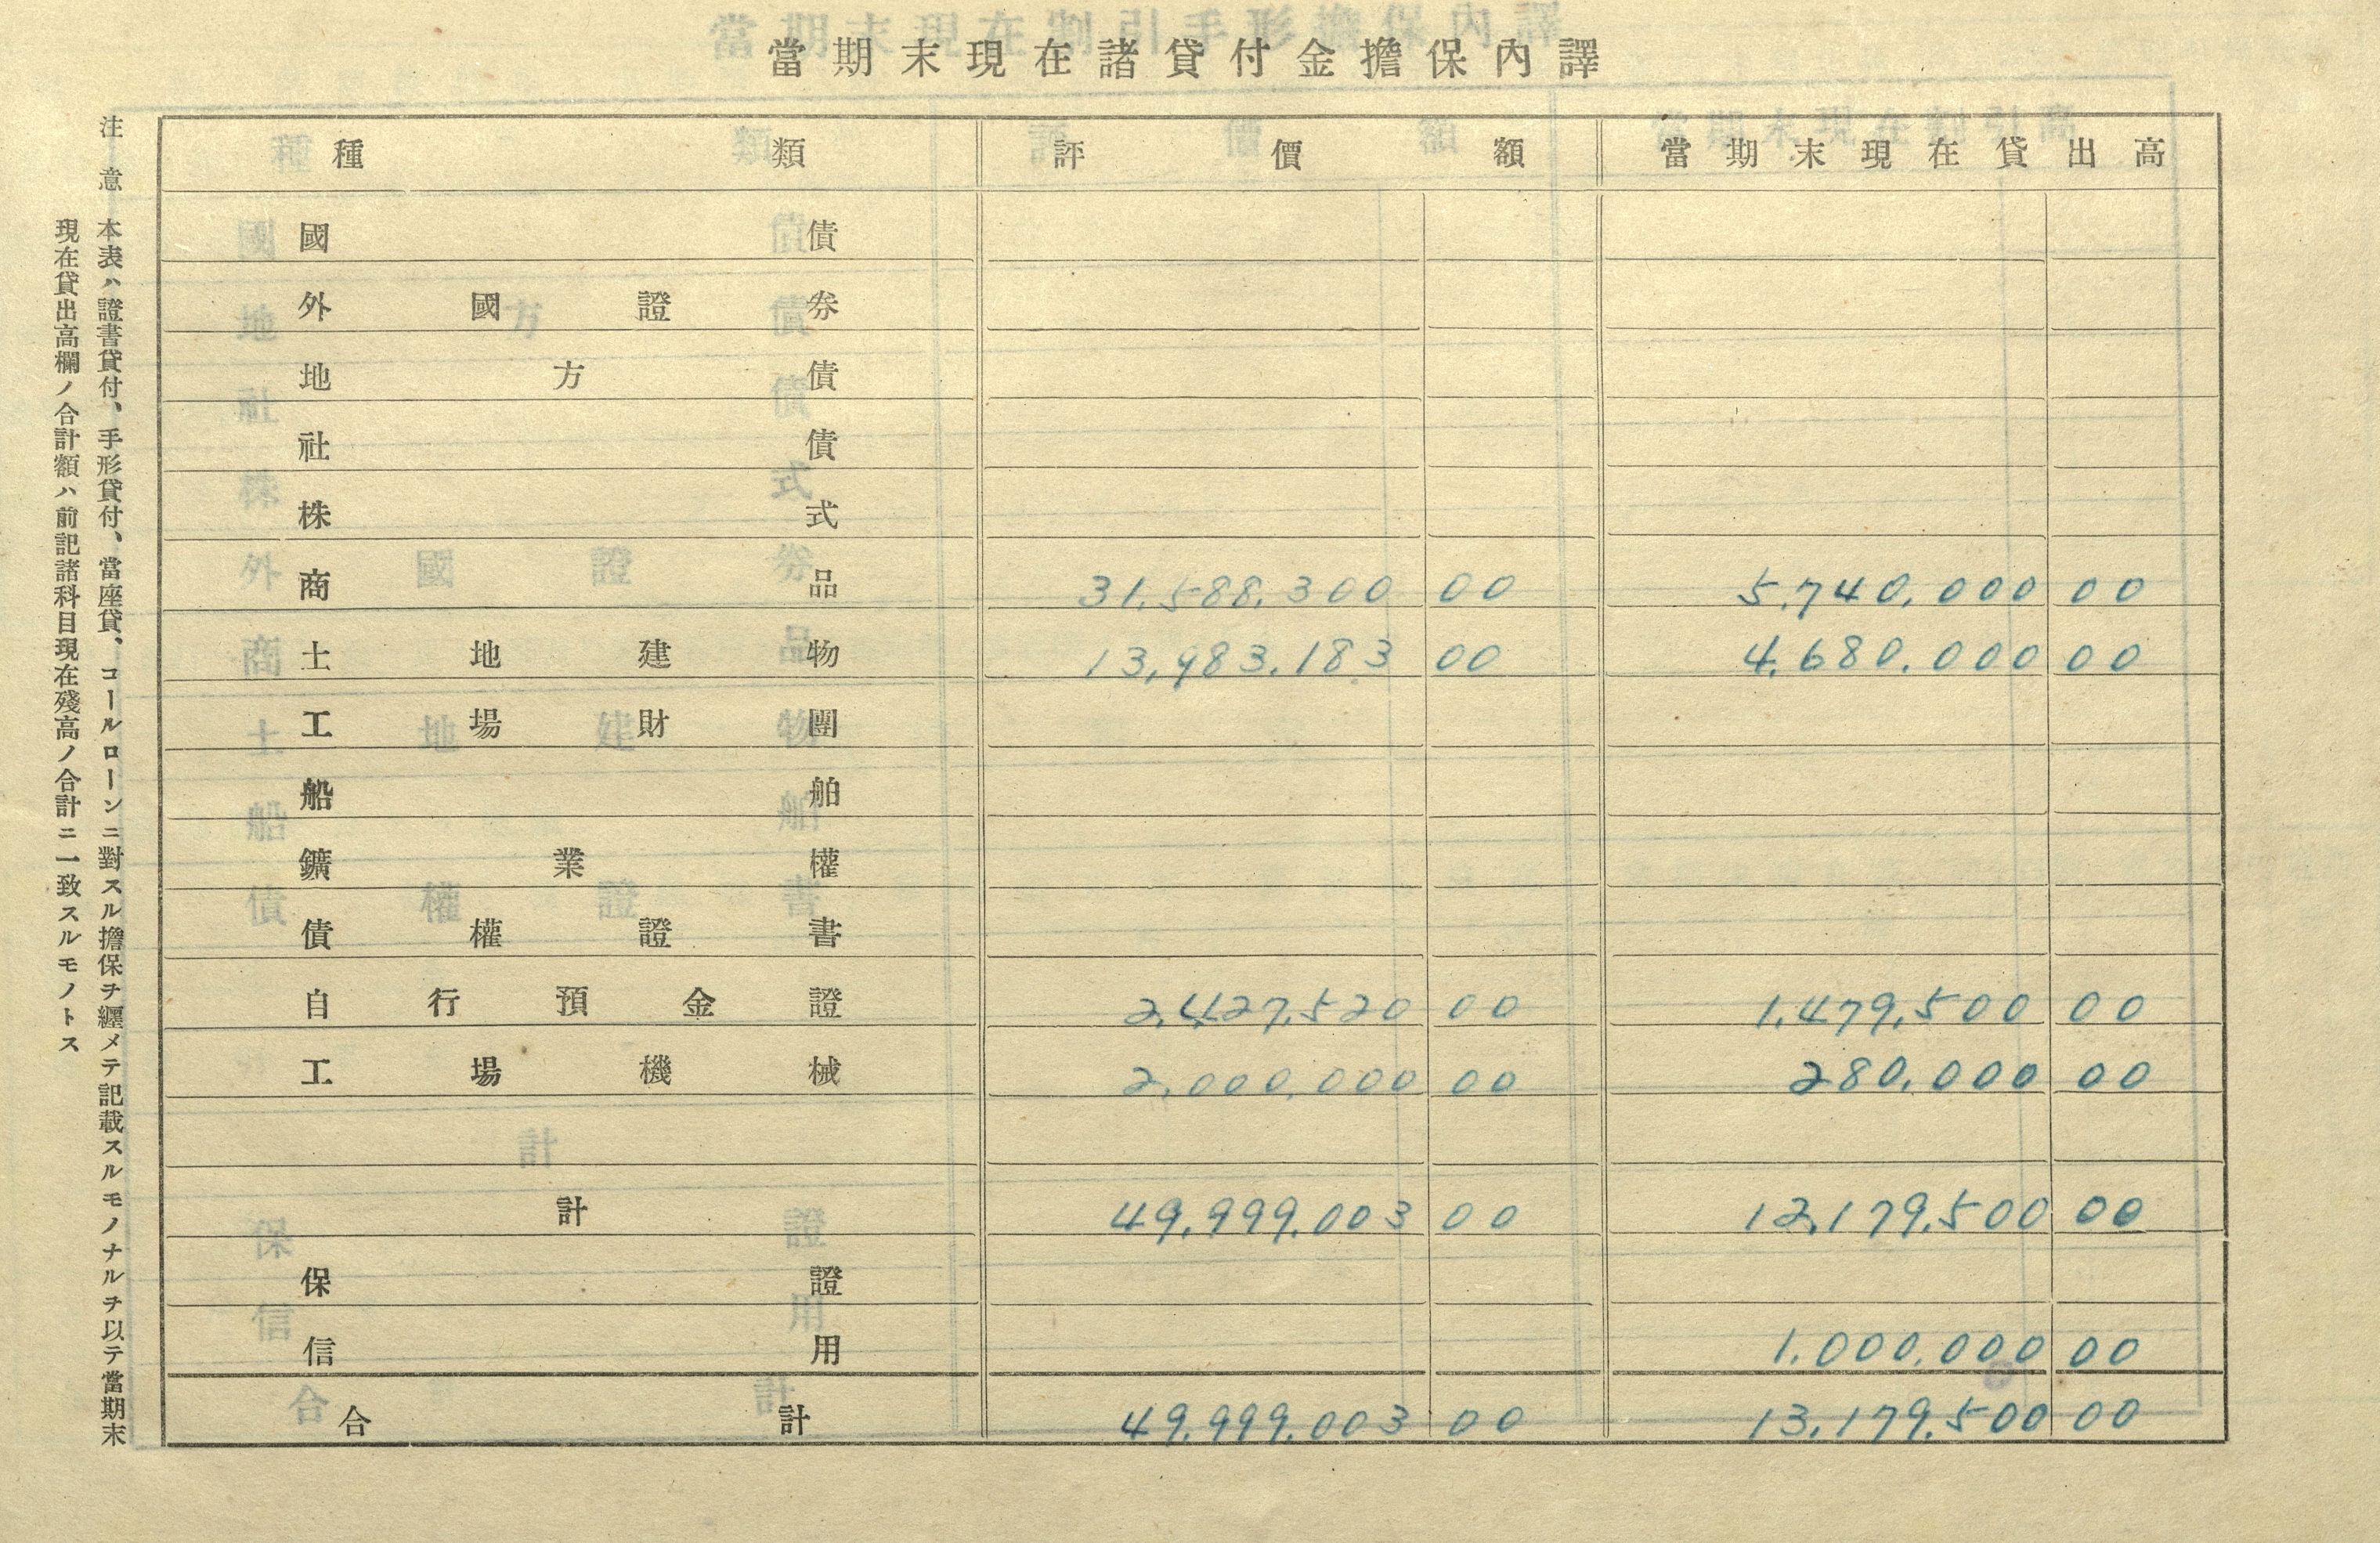 當期末現在諸貸付金擔保內譯
種類 評價額 當期末現在貸出高
國債
外國證券
地方債
社債
株式
商品 31,588,300 00 5,740,000 00
土地建物 13,983,183 00 4,680,000 00
工場財團
船舶
鑛業權
債權證書
自行預金證 2,427,520 00 1,479,500 00
工場機械 2,000,000 00 280,000 00
計 49,999,003 00 12,179,500 00
保證
信用 1,000,000 00
合計 49,999,003 00 13,179,500 00
注意 本表ハ證書貸付、手形貸付、當座貸、コールローンニ對スル擔保ヲ纒メテ記載スルモノナルヲ以テ當期末
現在貸出高欄ノ合計額ハ前記諸科目現在殘高ノ合計ニ一致スルモノトス